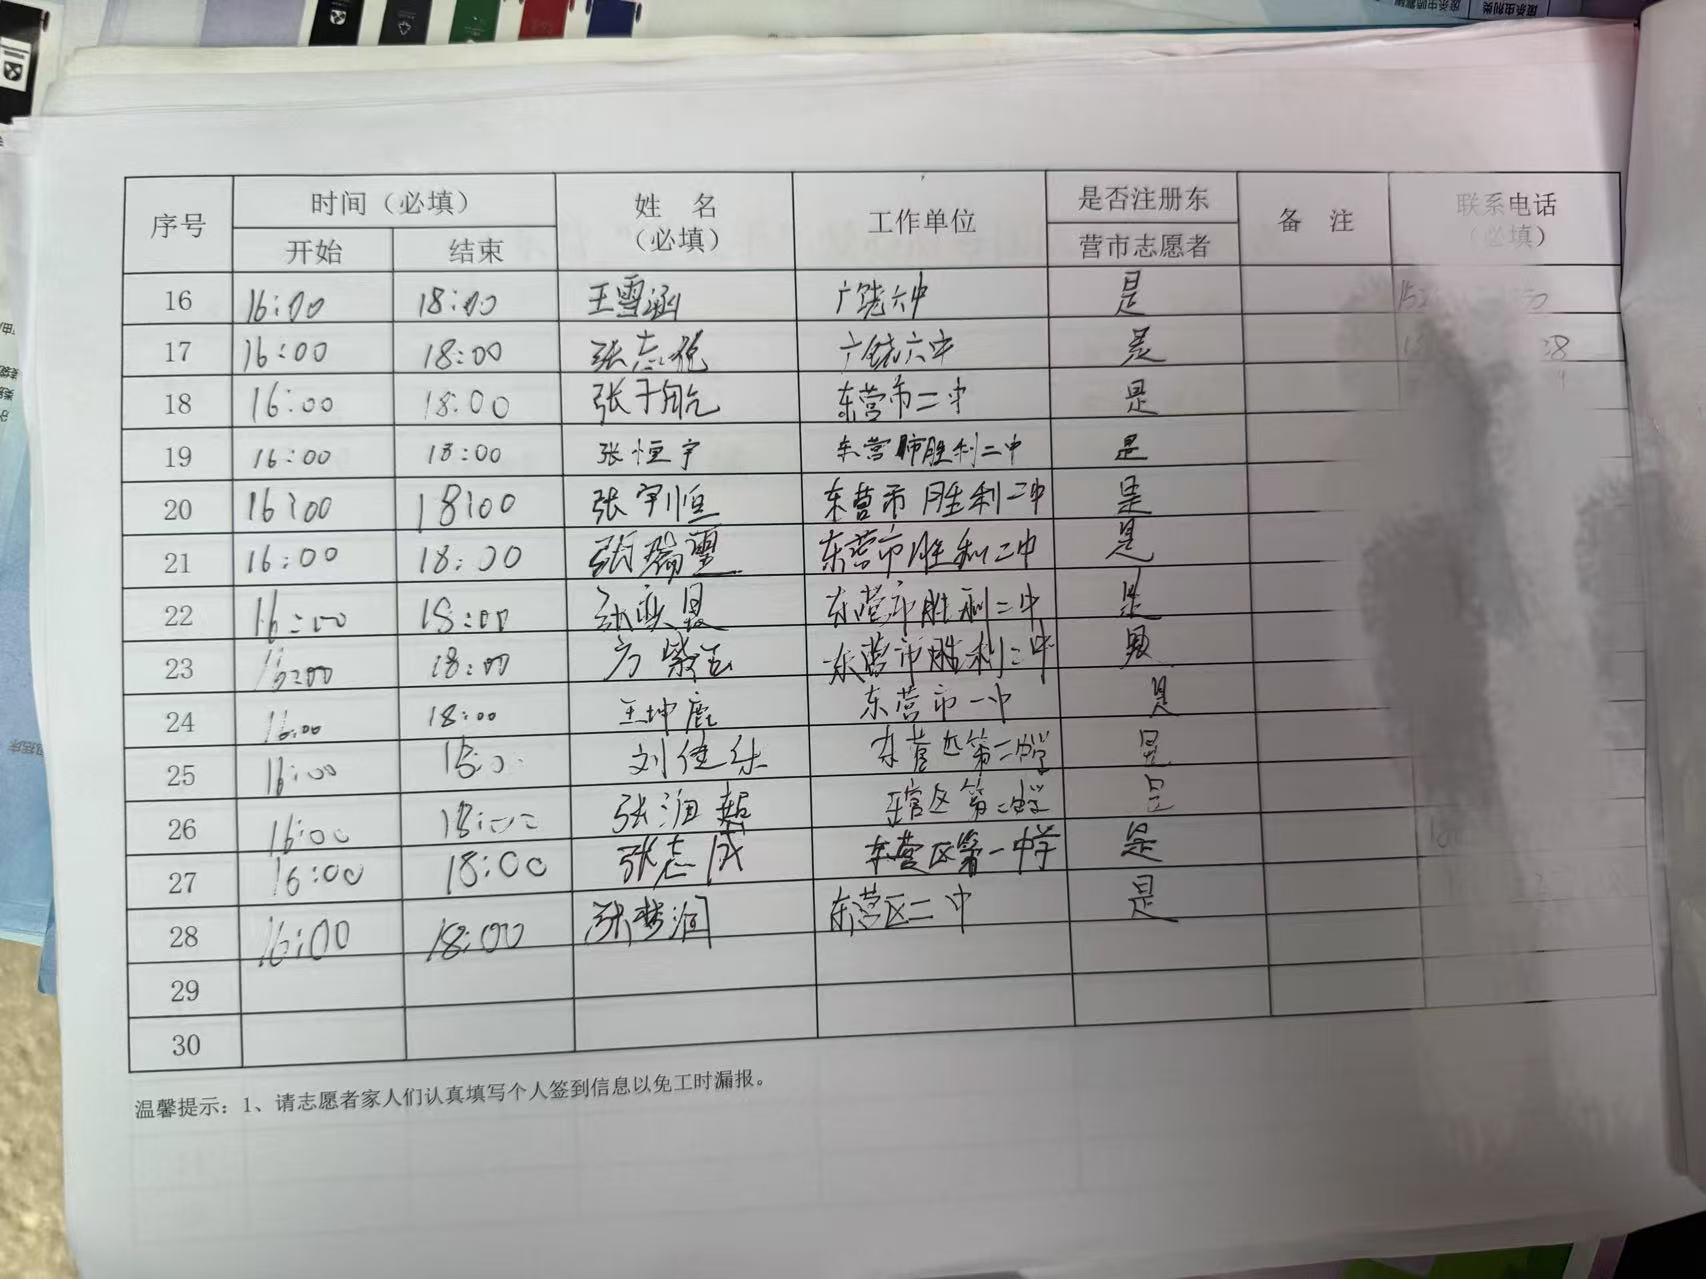 序号 时间（必填） 姓 名（必填） 工作单位 是否注册东营市志愿者 备 注 联系电话（必填）
开始 结束
16 16:00 18:00 王雪涵 广饶六中 是
17 16:00 18:00 张志悦 广饶六中 是
18 16:00 18:00 张于航 东营市二中 是
19 16:00 18:00 张恒宇 东营市胜利二中 是
20 16:00 18:00 张宇恒 东营市胜利二中 是
21 16:00 18:00 张瑞玺 东营市胜利二中 是
22 16:00 18:00 张 东营市胜利二中 是
23 16:00 18:00 方紫玉 东营市胜利二中 是
24 16:00 18:00 王坤鹿 东营市一中 是
25 16:00 18:00 刘佳乐 东营区第二中学 是
26 16:00 18:00 张润 东营区第二中学 是
27 16:00 18:00 张志成 东营区第一中学 是
28 16:00 18:00 张梦涵 东营区二中 是
29
30
温馨提示：1、请志愿者家人们认真填写个人签到信息以免工时漏报。